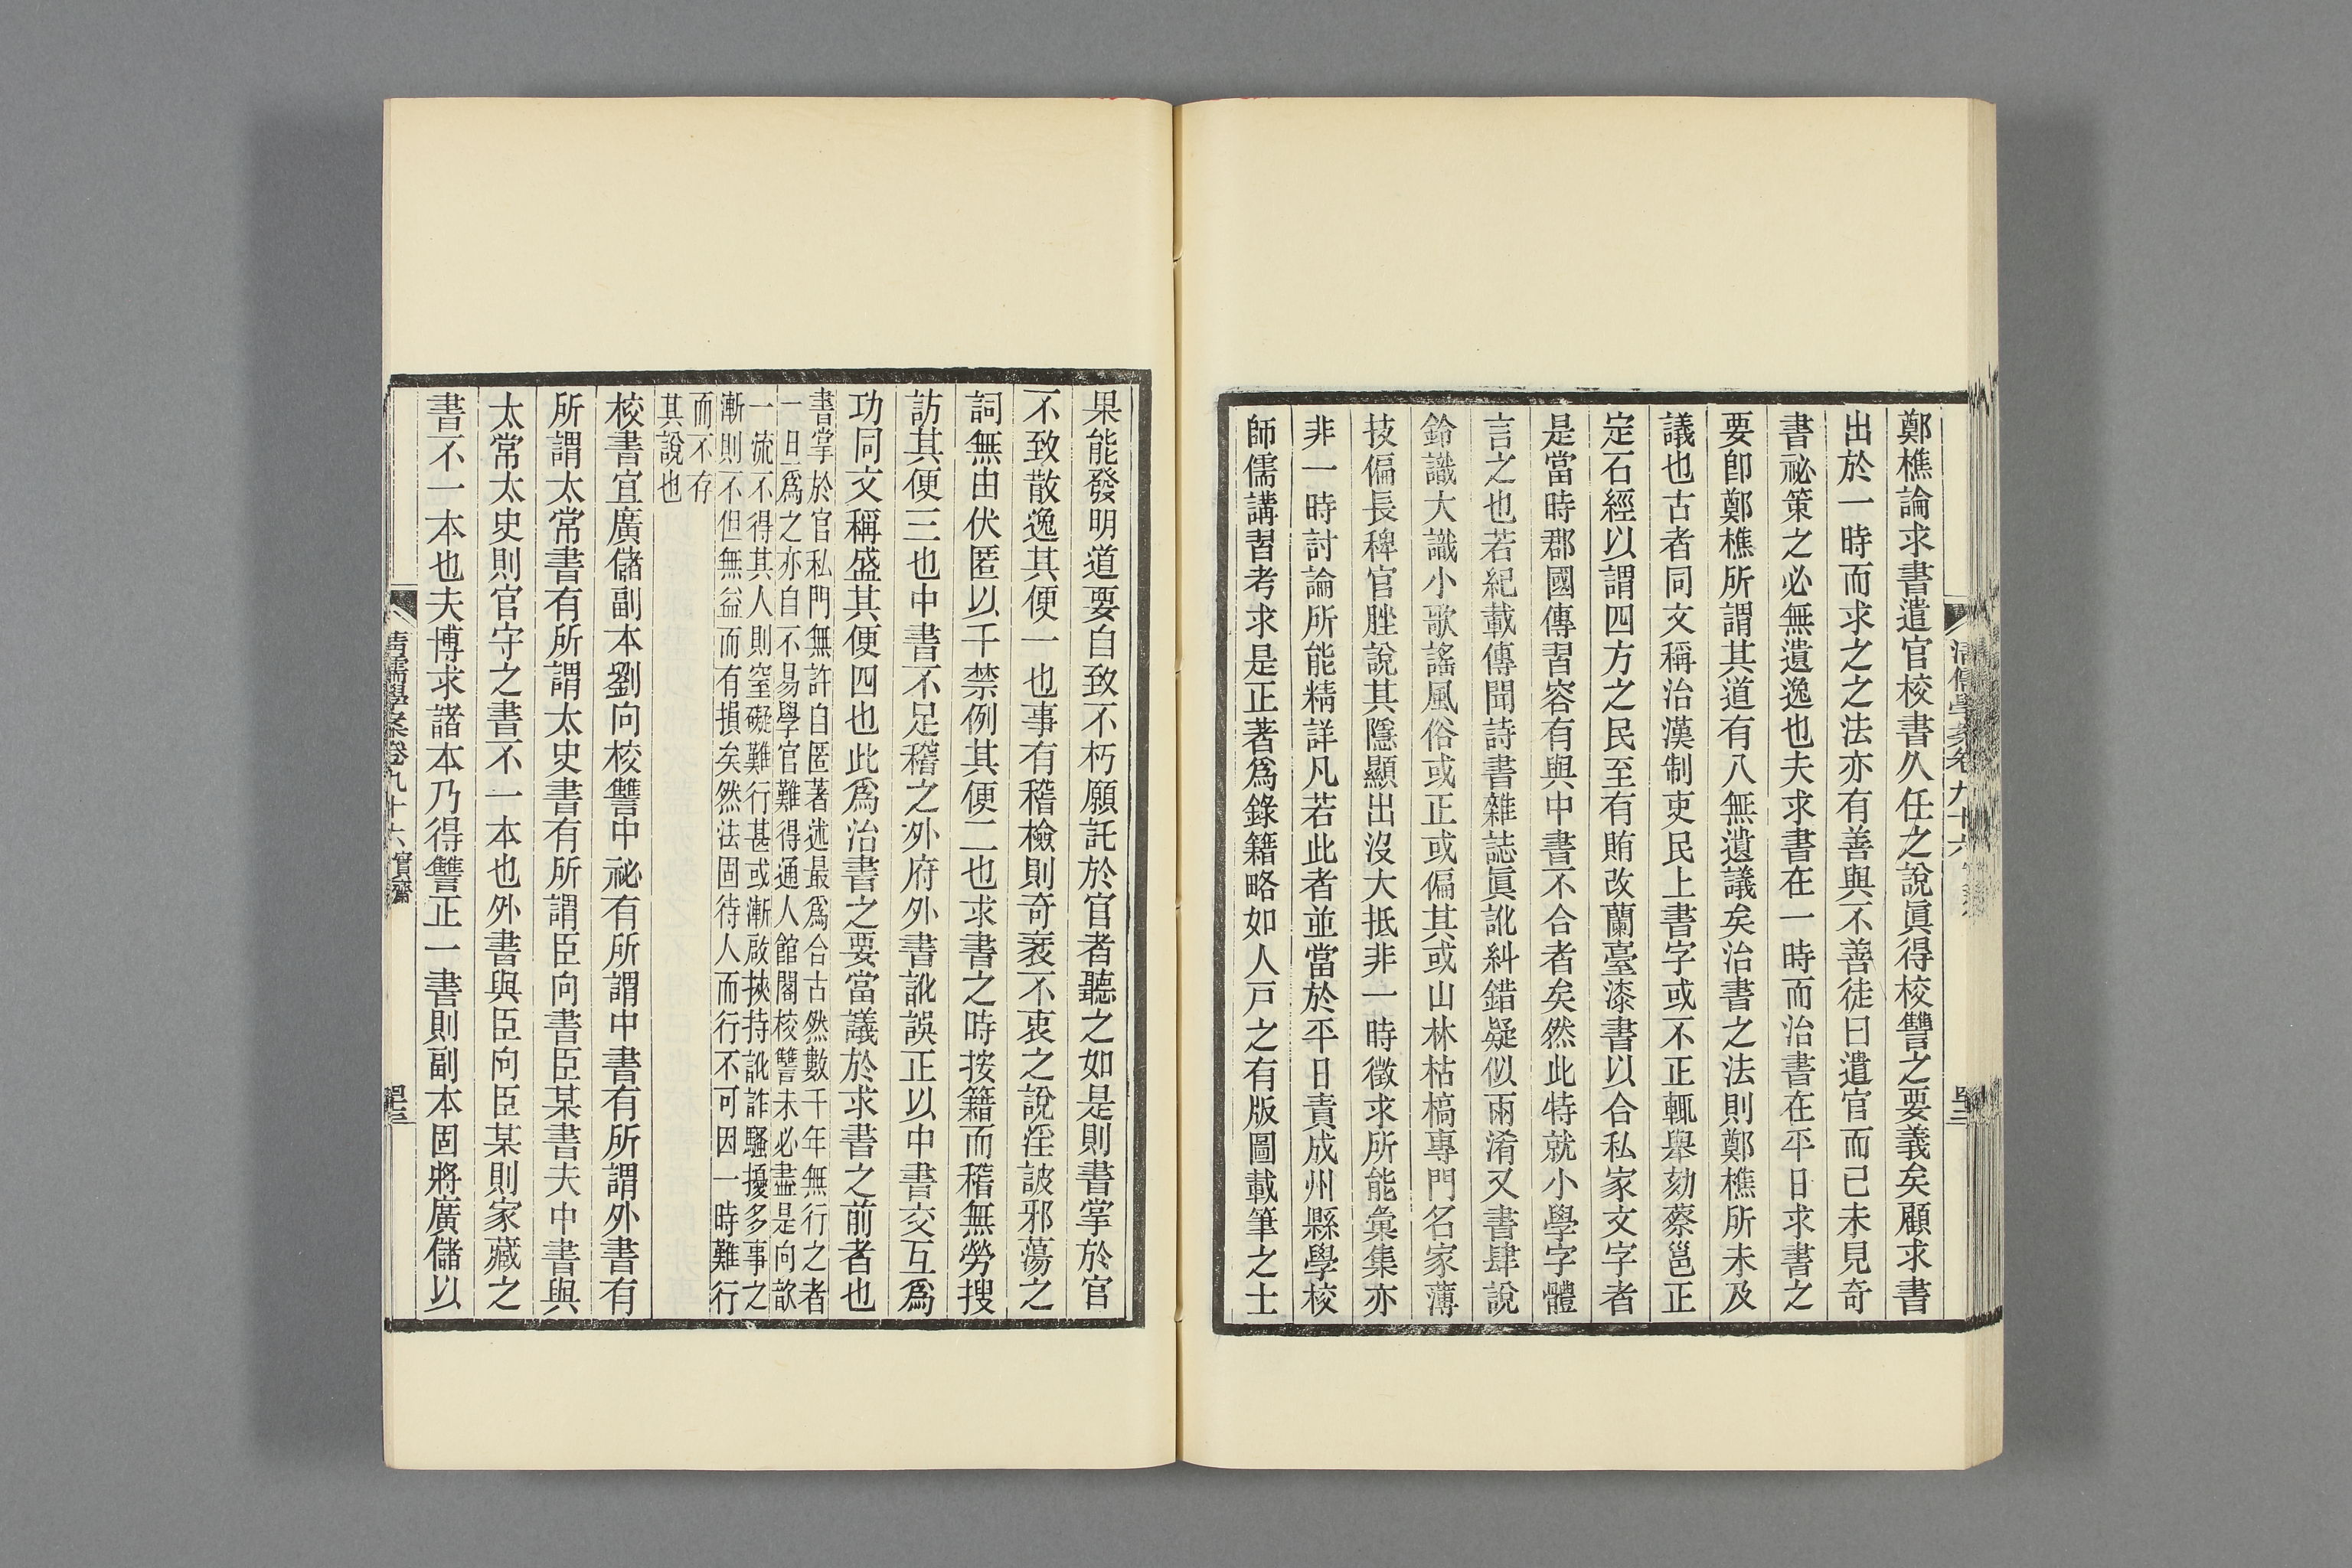 鄭樵論求書遣官校書久任之說眞得校讐之要義矣顧求書
出於一時而求之之法亦有善與不善徒曰遣官而已未見奇
書祕策之必無遺逸也夫求書在一時而治書在平日求書之
要卽鄭樵所謂其道有八無遺議矣治書之法則鄭樵所未及
議也古者同文稱治漢制吏民上書字或不正輒舉劾蔡邕正
定石經以謂四方之民至有賄改蘭臺漆書以合私家文字者
是當時郡國傳習容有與中書不合者矣然此特就小學字體
言之也若紀載傳聞詩書雜誌眞訛糾錯疑似兩淆又書肆說
鈴識大識小歌謠風俗或正或偏其或山林枯槁專門名家薄
技偏長稗官脞說其隱顯出沒大抵非一時徵求所能彙集亦
非一時討論所能精詳凡若此者並當於平日責成州縣學校
師儒講習考求是正著爲錄籍略如人戸之有版圖載筆之士
果能發明道要自致不朽願託於官者聽之如是則書掌於官
不致散逸其便一也事有稽檢則奇衺不衷之說淫詖邪蕩之
詞無由伏匿以干禁例其便二也求書之時按籍而稽無勞搜
訪其便三也中書不足稽之外府外書訛誤正以中書交互爲
功同文稱盛其便四也此爲治書之要當議於求書之前者也
書掌於官私門無許自匿著述最爲合古然數千年無行之者
一日爲之亦自不易學官難得通人館閣校讐未必盡是向歆
一流不得其人則窒礙難行甚或漸啟挾持訛詐騷擾多事之
漸則不但無益而有損矣然法固待人而行不可因一時難行
而不存
其說也
校書宜廣儲副本劉向校讐中祕有所謂中書有所謂外書有
所謂太常書有所謂太史書有所謂臣向書臣某書夫中書與
太常太史則官守之書不一本也外書與臣向臣某則家藏之
書不一本也夫博求諸本乃得讐正一書則副本固將廣儲以
清儒學案卷九十六 實齋